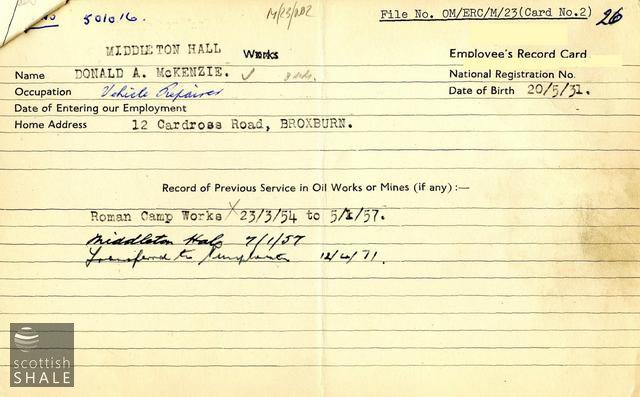 No 501016 M/23/202 File No. OM/ERC/M/23(Card No.2) 26
MIDDLETON HALL Works Employee's Record Card
Name DONALD A. McKENZIE. National Registration No.
Occupation Vehicle Repairer Date of Birth 20/5/31.
Date of Entering our Employment
Home Address 12 Cardross Road, BROXBURN.
Record of Previous Service in Oil Works or Mines (if any) :—
Roman Camp Works 23/3/54 to 5/1/57.
Middleton Hall 7/1/57
Transferred to 12/4/71.
scottish
SHALE